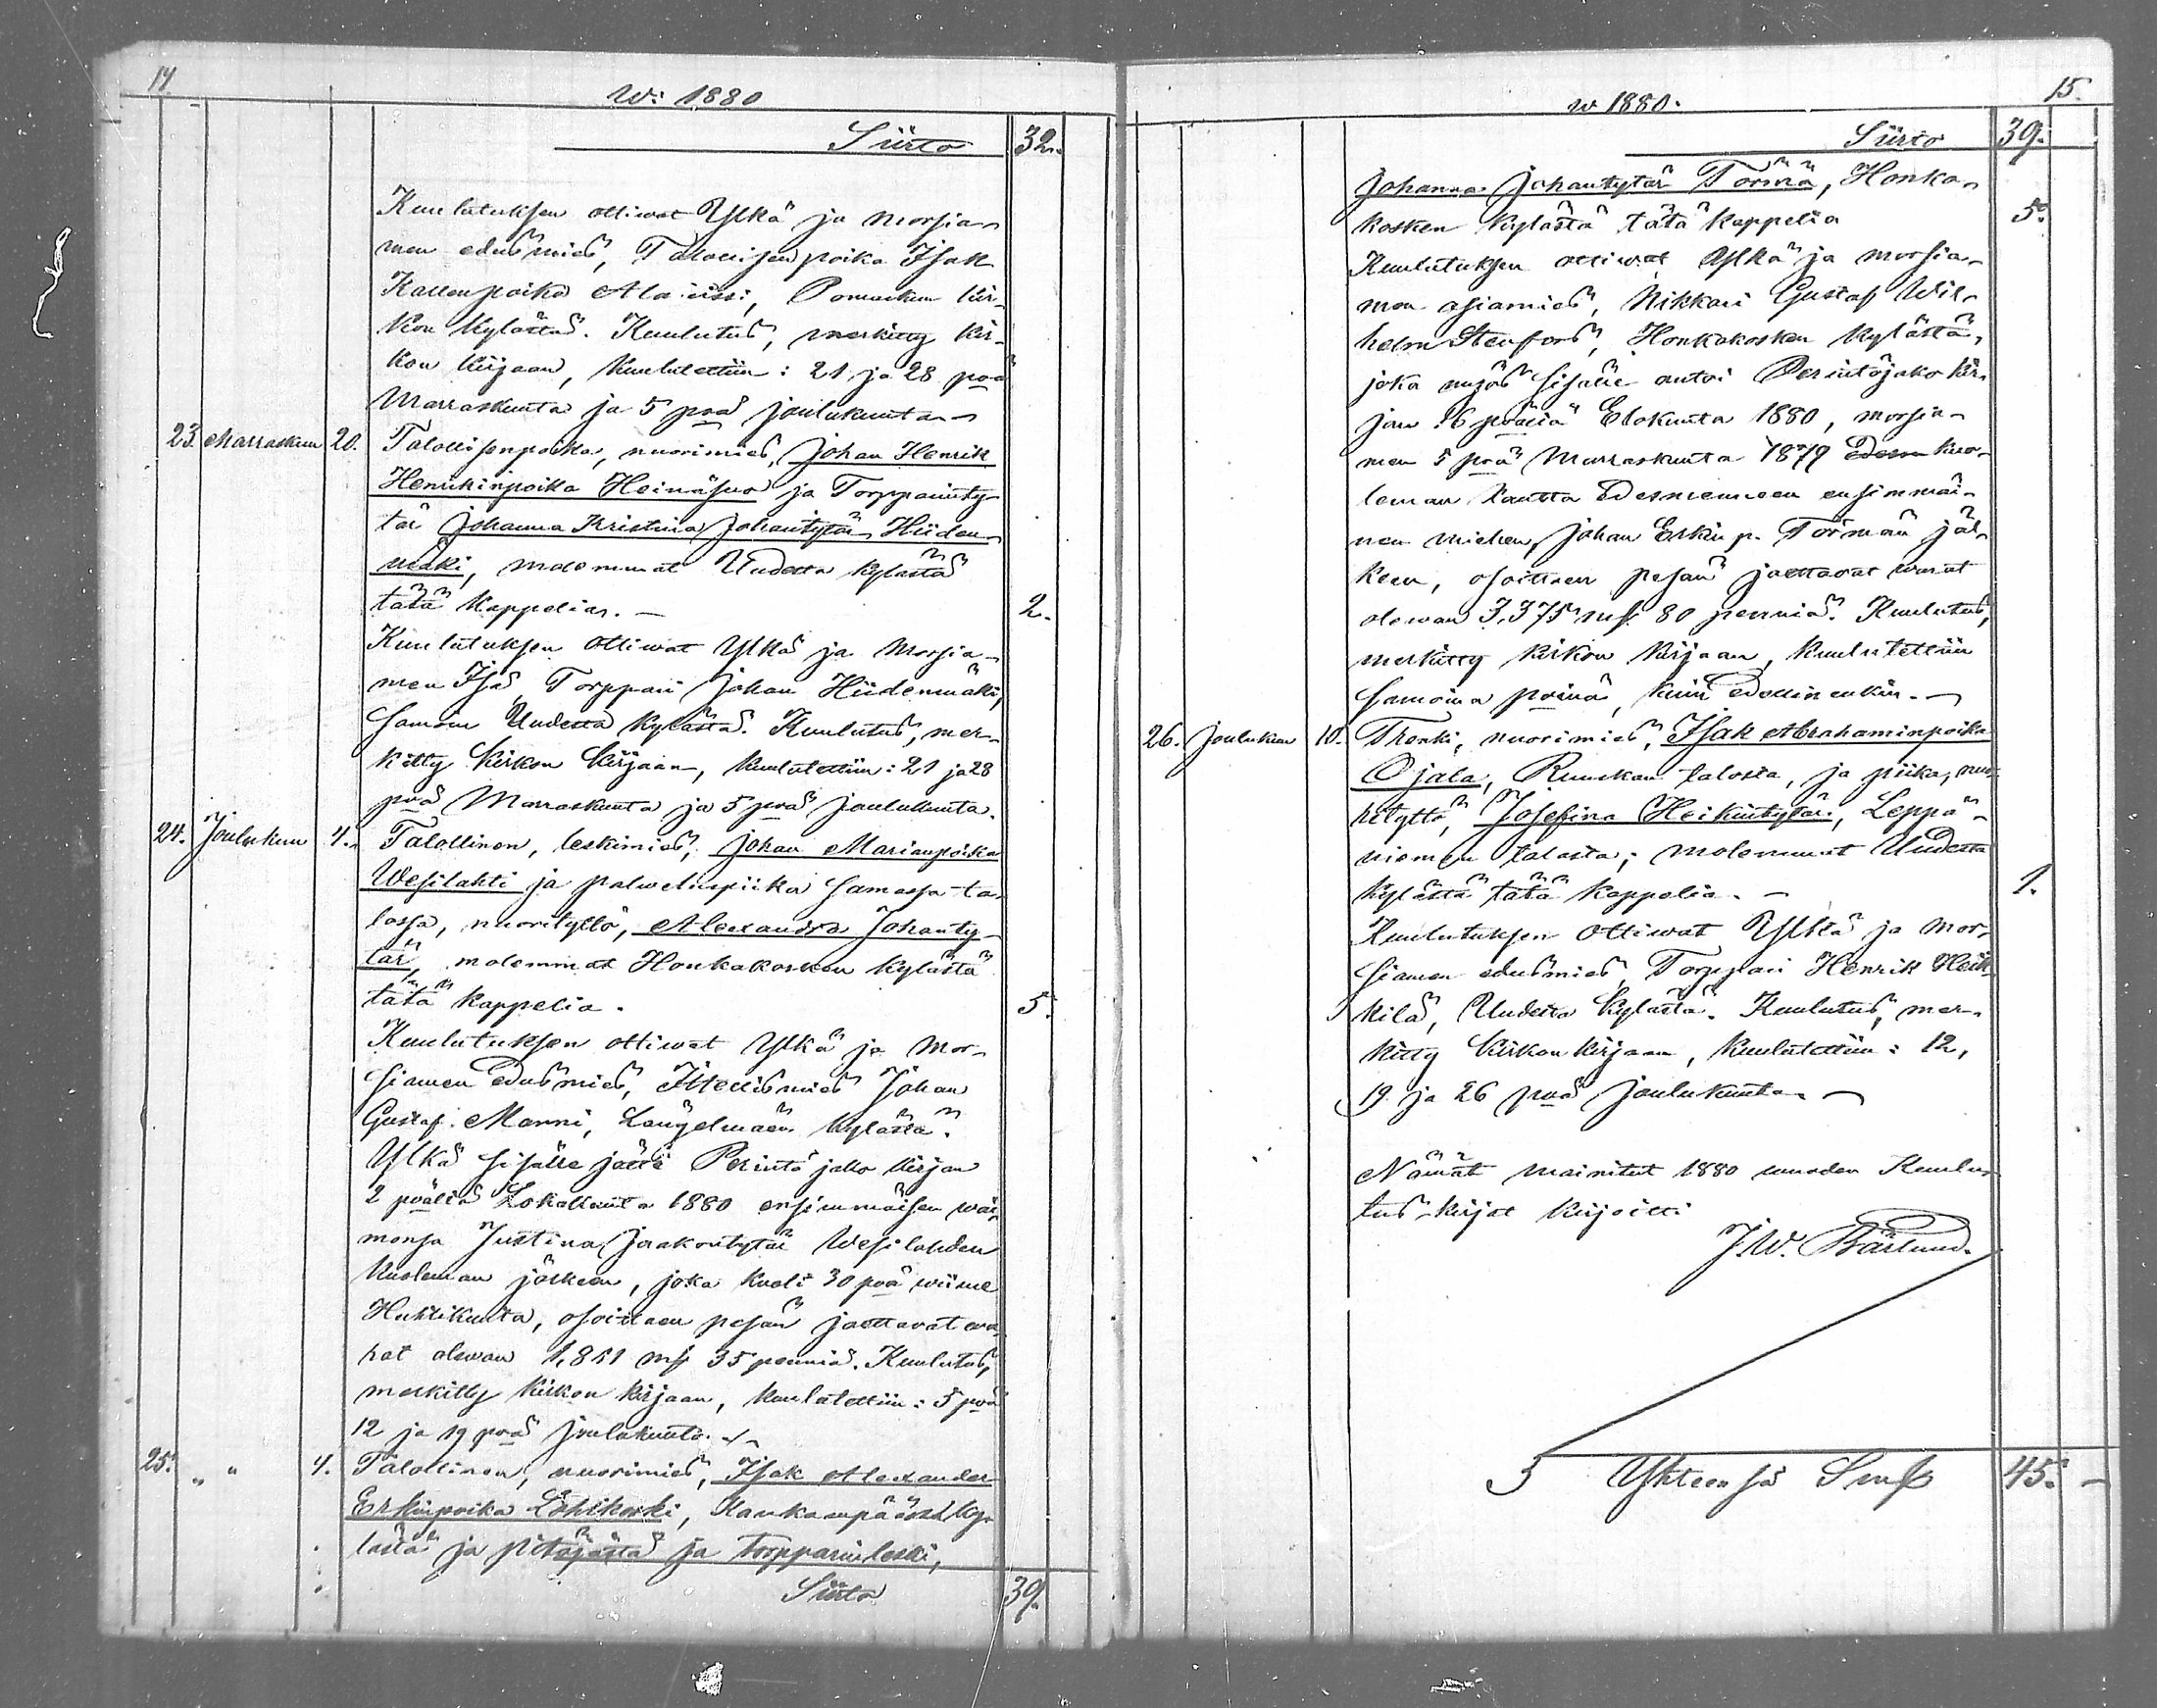 14.
W: 1880
Siirto 32.
Kuulutuksen ottiwat Ylkä ja morsia-
men edusmies, Talollisenpoika Isak
Kallenpoika Ala, Pomarkun kir-
kon kylästä. Kuulutus, merkitty kir-
kon kirjaan, kuulutettiin: 21 ja 28 pvä
Marraskuuta ja 5 pvä joulukuuta
23. Marraskuun 20. Talollisenpoika, nuorimies, Johan Henrik
Henrikinpoika Heinäsuo ja Torpparinty-
tär Johanna Kristina Johantytär Hiiden-
mäki, molemmat Uudesta kylästä
tätä kappelia. — 2.
Kuulutuksen ottiwat Ylkä ja Morsia-
men Isä, Torppari Johan Hiidenmäki,
samoin Uudesta kylästä. Kuulutus, mer-
kitty kirkon kirjaan, kuulutettiin: 21 ja 28
pvä Marraskuuta ja 5 pvä joulukuuta.
24. Joulukuun 4. Talollinen, leskimies, Johan Marianpoika
Wesilahti ja palweluspiika samassa ta-
lossa, nuorityttö, Alexandra Johanty-
tär, molemmat Honkakosken kylästä
tätä kappelia. 5.
Kuulutuksen ottiwat Ylkä ja Mor-
siamen Edusmies, Itellismies Johan
Gustaf Manni, Längelmäen kylästä.
Ylkä sisälle jätti Perintö jako kirjan
2 pvältä Lokakuuta 1880 ensimmäisen wai-
monsa Justina Jaakontytär Wesilahden
kuoleman jälkeen, joka kuoli 30 pvä wiime
Huhtikuuta, osoittaen pesän jaettavat wa-
rat olewan 1,851 mk 35 penniä. Kuulutus,
merkitty kirkon kirjaan, kuulutettiin: 5 pvä
12 ja 19 pvä joulukuuta.
25. " " 4. Talollinen, nuorimies, Isak Alexander
Erkinpoika Löhikoski, Kankaanpään ky-
lästä ja pitäjästä ja torpparinleski,
Siirto 39.
15.
w 1880.
Siirto 39.
Johanna Johantytär Törmä, Honka-
kosken kylästä tätä kappelia 5.
Kuulutuksen ottiwat Ylkä ja morsia-
men asiamies, Nikkari Gustaf Wil-
helm Stenfors, Honkakosken kylästä,
joka myös sisälle antoi Perintöjako kir-
jan 16 pvältä Elokuuta 1880, morsia-
men 5 pvä Marraskuuta 1879 kuo-
leman kautta Edesmenneen ensimmäi-
nen miehen, Johan Erkin p. Törmän jäl-
keen, osoittaen pesän jaettavat warat
olewan 3,375 mk 80 penniä. Kuulutus,
merkitty kirkon kirjaan, kuulutettiin
samoina pvinä, kuin Edellinenkin. —
26. Joulukuun 10. Trenki, nuorimies, Isak Abrahaminpoika
Ojala, talosta, ja piika, nuo-
rityttö, Josefina Heikintytär, Leppä-
niemen talosta; molemmat Uudesta
kylästä tätä kappelia. — 1.
Kuulutuksen ottiwat Ylkä ja Mor-
siamen edusmies, Torppari Henrik Heik-
kilä, Uudesta kylästä. Kuulutus, mer-
kitty kirkon kirjaan, kuulutettiin: 12,
19 ja 26 pvä joulukuuta. —
Nämät mainitut 1880 vuoden Kuulu-
tus-kirjat kirjoitti
J.W. Bärlund.
Yhteensä Smk 45. —